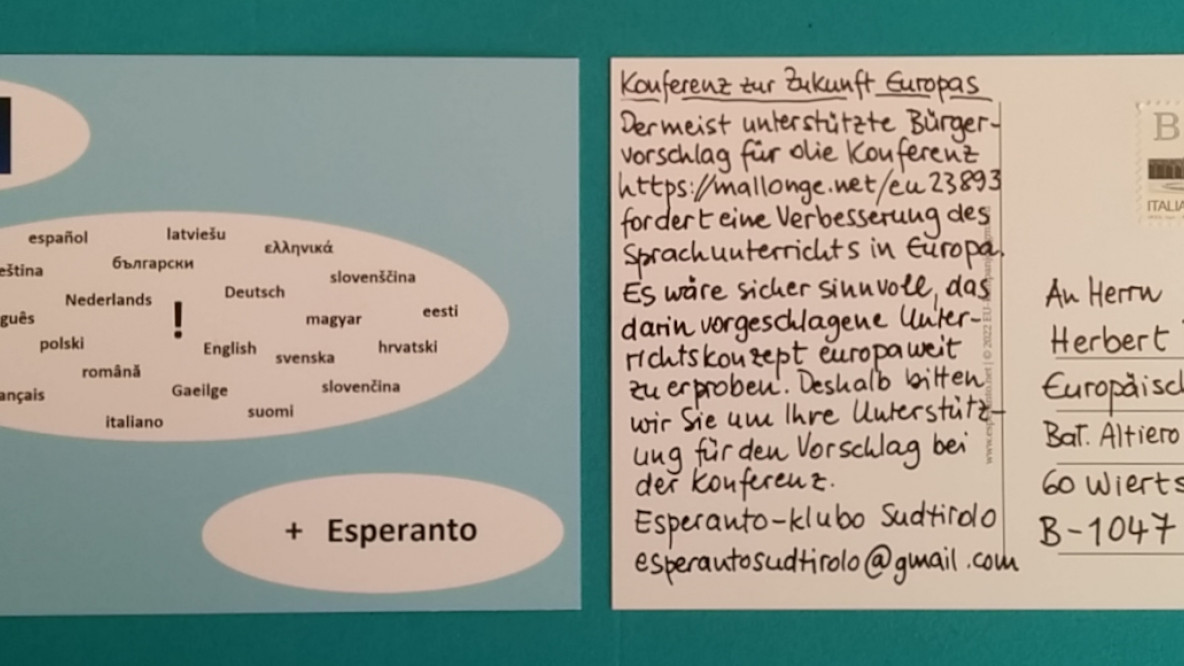 español
latviešu
ελληνικά
eština
български
slovenščina
Nederlands
!
Deutsch
guês
magyar
eesti
polski
English
svenska
hrvatski
română
ançais
Gaeilge
slovenčina
italiano
suomi
+ Esperanto
Konferenz zur Zukunft Europas
Der meist unterstützte Bürger-
vorschlag für die Konferenz
https://mallonge.net/eu23893
fordert eine Verbesserung des
Sprachunterrichts in Europa.
Es wäre sicher sinnvoll, das
darin vorgeschlagene Unter-
richtskonzept europaweit
zu erproben. Deshalb bitten
wir Sie um Ihre Unterstütz-
ung für den Vorschlag bei
der Konferenz.
Esperanto-klubo Sudtirolo
esperantosudtirolo@gmail.com
B
ITALIA
An Herrn
Herbert
Europäisc
Bat. Altiero
60 Wierts
B-1047